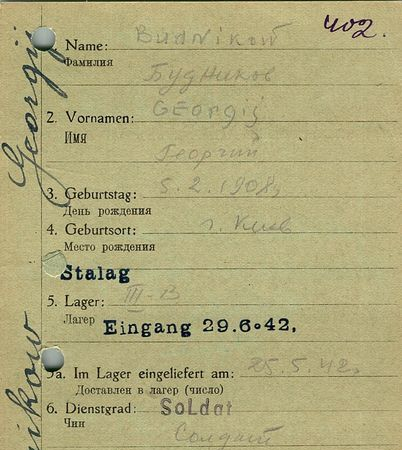 402.
1. Name: BUdNiKOW
Фамилия
Будников
2. Vornamen: GEOrgij
Имя
Георгий
3. Geburtstag: 5.2.1908,
День рождения
4. Geburtsort: г. Киев
Место рождения
Stalag
5. Lager: III-B
Лагер
Eingang 29.6.42,
5a. Im Lager eingeliefert am: 25.5.42,
Доставлен в лагер (число)
6. Dienstgrad: Soldat
Чин
Солдат
Georgij